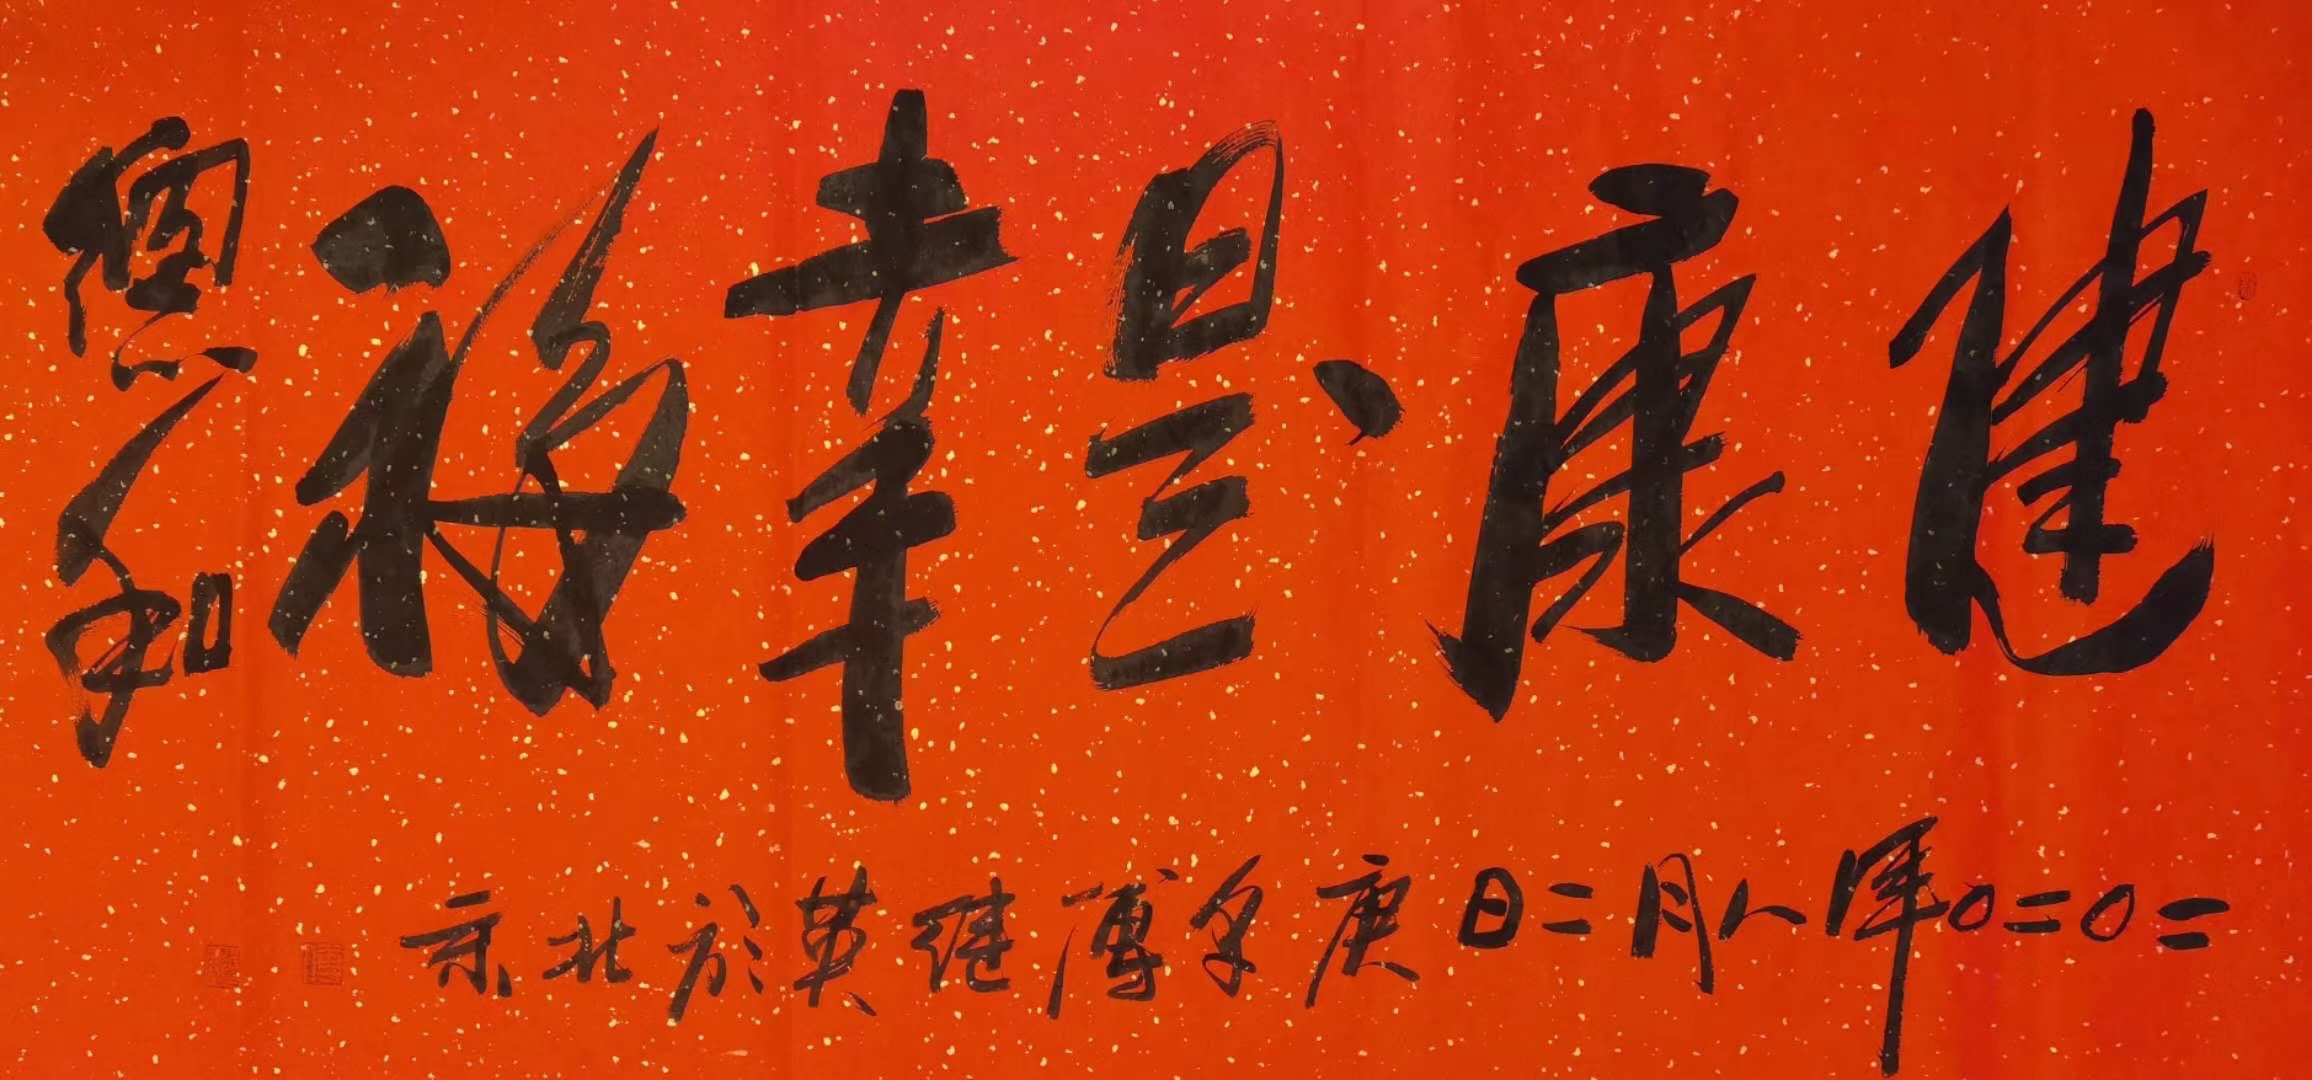 健康是幸福
恩和
二〇二〇年八月二日庚子傅继英於北京